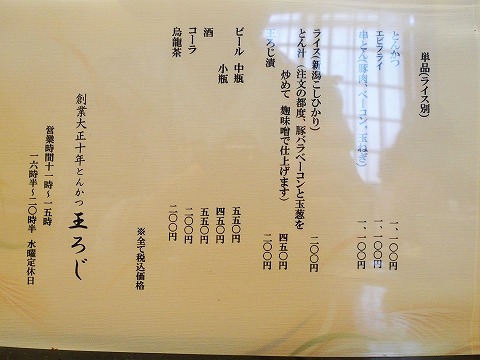 単品(ライス別)
とんかつ 一、一〇〇円
エビフライ 一、一〇〇円
串とん(豚肉、ベーコン、玉ねぎ) 一、一〇〇円
ライス(新潟こしひかり) 二〇〇円
とん汁(注文の都度、豚バラベーコンと玉葱を
炒めて 麹味噌で仕上げます) 四五〇円
王ろじ漬 二〇〇円
ビール 中瓶 五五〇円
小瓶 四五〇円
酒 五五〇円
コーラ 二〇〇円
烏龍茶 二〇〇円
※全て税込価格
創業大正十年とんかつ 王ろじ
営業時間十一時〜一五時
一六時半〜二〇時半 水曜定休日